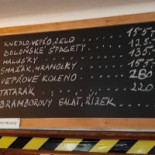 KNEDLO, VEPŘO, ZELO 155.-
BOLOŇSKÉ ŠPAGETY 125.-
HALUŠKY 135.-
SMAŽÁK, HRANOLKY 155.-
VEPŘOVÉ KOLENO 280
TATARÁK 220
BRAMBOROVÝ SALÁT, ŘÍZEK